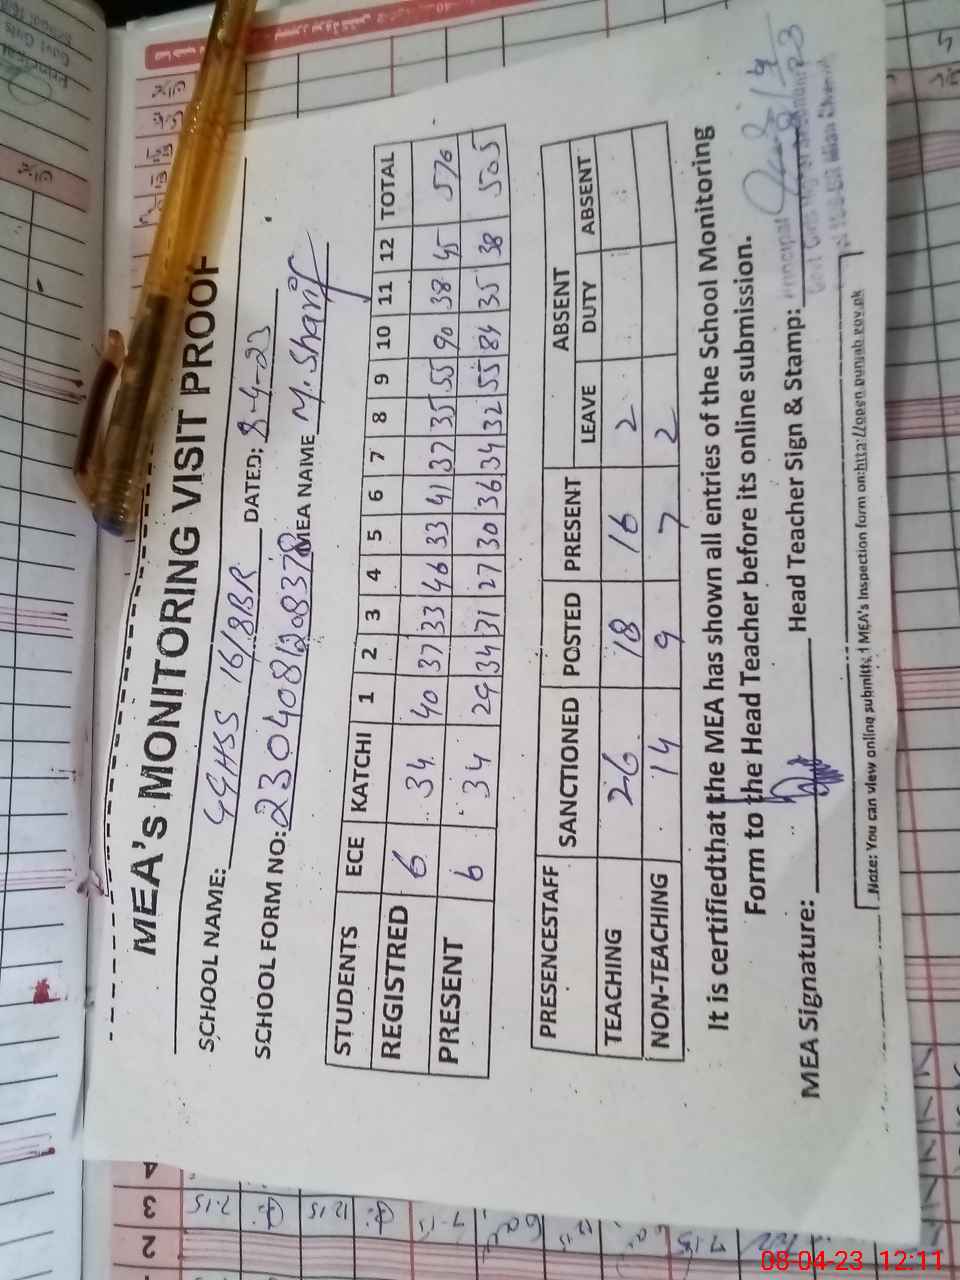 MEA's MONITORING VISIT PROOF
SCHOOL NAME: GGHSS 16/8BR DATED: 8-4-23
SCHOOL FORM NO: 230408128378 MEA NAME M. Sharif
STUDENTS ECE KATCHI 1 2 3 4 5 6 7 8 9 10 11 12 TOTAL
REGISTRED 6 34 40 37 33 46 33 41 37 35 55 90 38 45 570
PRESENT 6 34 29 34 31 27 30 36 34 32 55 84 35 38 505
PRESENCESTAFF SANCTIONED POSTED PRESENT ABSENT
LEAVE DUTY ABSENT
TEACHING 26 18 16 2
NON-TEACHING 14 9 7 2
It is certifiedthat the MEA has shown all entries of the School Monitoring
Form to the Head Teacher before its online submission.
MEA Signature: Head Teacher Sign & Stamp:
Principal
Note: You can view online submitted MEA's Inspection form on:http://open.punjab.gov.pk
4
3 7-15 12 15 7-15
2 7-15
08-04-23 12:11